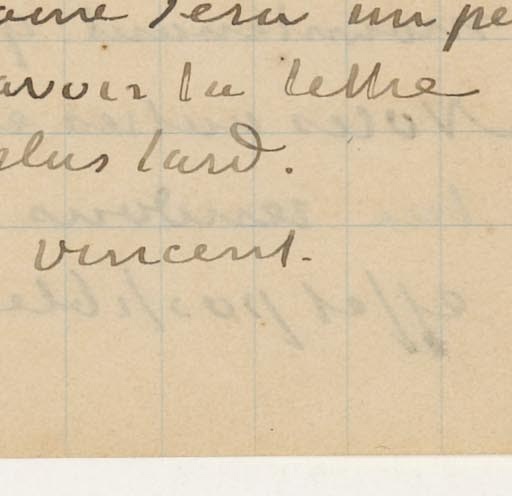 sera un pe
avoir la lettre
plus tard.
Vincent.